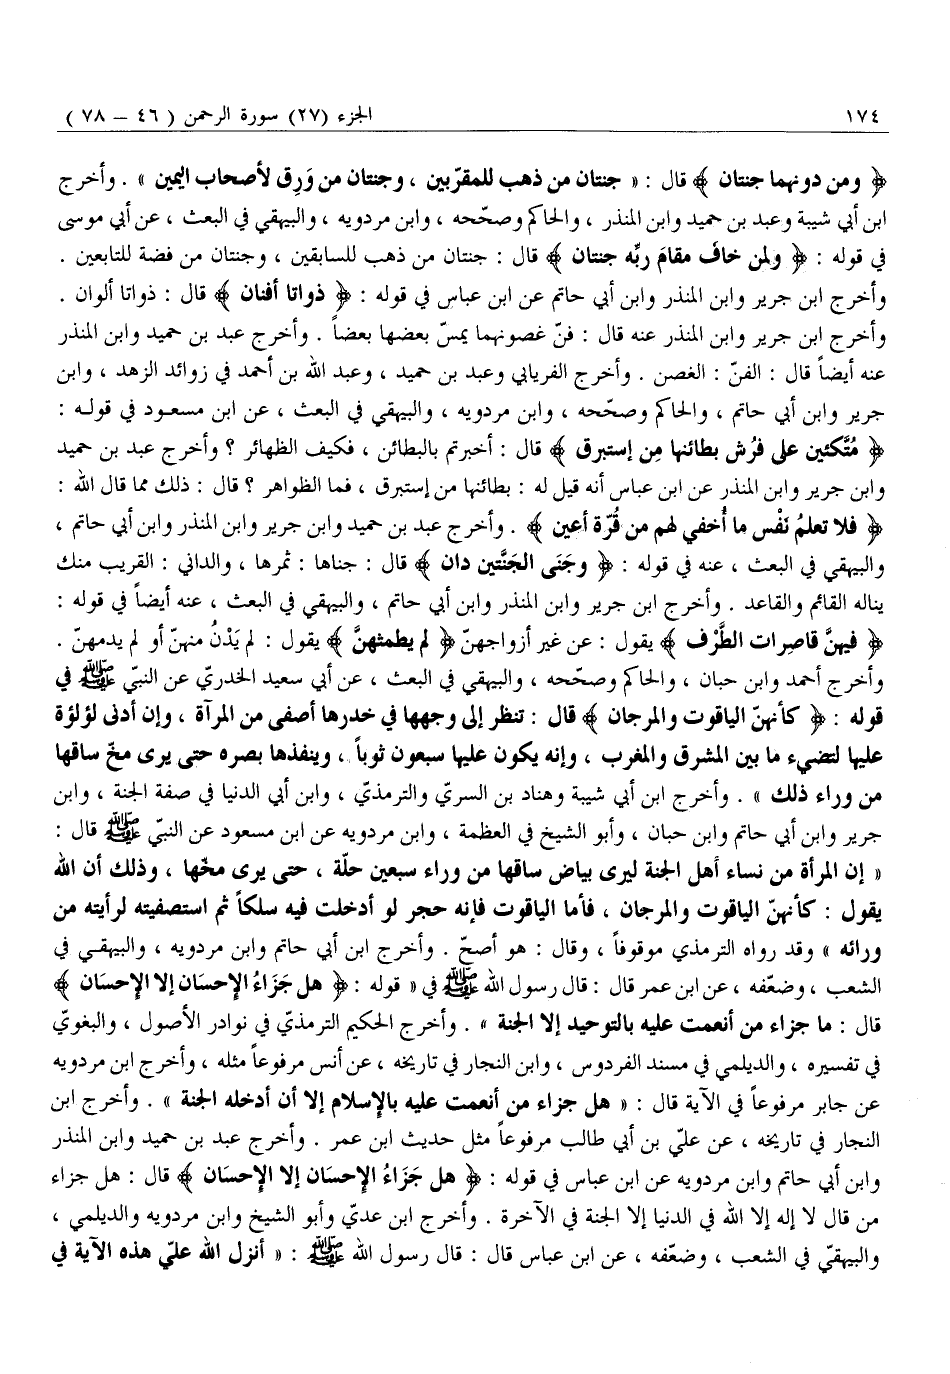 ١٧٤ الجزء (٢٧) سورة الرحمن ( ٤٦ – ٧٨ )
﴿ ومن دونهما جنتان ﴾ قال : « جنتان من ذهب للمقرّبين ، وجنتان من وَرِق لأصحاب اليمين » . وأخرج
ابن أبي شيبة وعبد بن حميد وابن المنذر ، والحاكم وصحّحه ، وابن مردويه ، والبيهقي في البعث ، عن أبي موسى
في قوله : ﴿ ولمن خافَ مقامَ ربّه جنتان ﴾ قال : جنتان من ذهب للسابقين ، وجنتان من فضة للتابعين .
وأخرج ابن جرير وابن المنذر وابن أبي حاتم عن ابن عباس في قوله : ﴿ ذواتا أفنان ﴾ قال : ذواتا ألوان .
وأخرج ابن جرير وابن المنذر عنه قال : فنّ غصونهما يمسّ بعضها بعضاً . وأخرج عبد بن حميد وابن المنذر
عنه أيضاً قال : الفنّ : الغصن . وأخرج الفريابي وعبد بن حميد ، وعبد الله بن أحمد في زوائد الزهد ، وابن
جرير وابن أبي حاتم ، والحاكم وصحّحه ، وابن مردويه ، والبيهقي في البعث ، عن ابن مسعود في قوله :
﴿ مُتَّكئين على فرُش بطائنها مِن إستبرق ﴾ قال : أخبرتم بالبطائن ، فكيف الظهائر ؟ وأخرج عبد بن حميد
وابن جرير وابن المنذر عن ابن عباس أنه قيل له : بطائنها من إستبرق ، فما الظواهر ؟ قال : ذلك مما قال الله :
﴿ فلا تعلمُ نَفْس ما أُخفي لهم من قُرّة أعين ﴾ . وأخرج عبد بن حميد وابن جرير وابن المنذر وابن أبي حاتم ،
والبيهقي في البعث ، عنه في قوله : ﴿ وجَنَى الجَنَّتين دان ﴾ قال : جناها : ثمرها ، والداني : القريب منك
يناله القائم والقاعد . وأخرج ابن جرير وابن المنذر وابن أبي حاتم ، والبيهقي في البعث ، عنه أيضاً في قوله :
﴿ فيهنّ قاصرات الطَّرْف ﴾ يقول : عن غير أزواجهنّ ﴿ لم يطمثهنَّ ﴾ يقول : لم يَدْنُ منهنّ أو لم يدمهنّ .
وأخرج أحمد وابن حبان ، والحاكم وصحّحه ، والبيهقي في البعث ، عن أبي سعيد الخدريّ عن النبيّ ﷺ في
قوله : ﴿ كأنهنّ الياقوت والمرجان ﴾ قال : تنظر إلى وجهها في خدرها أصفى من المرآة ، وإن أدنى لؤلؤة
عليها لتضيء ما بين المشرق والمغرب ، وإنه يكون عليها سبعون ثوباً ، وينفذها بصره حتى يرى مخّ ساقها
من وراء ذلك » . وأخرج ابن أبي شيبة وهناد بن السريّ والترمذيّ ، وابن أبي الدنيا في صفة الجنة ، وابن
جرير وابن أبي حاتم وابن حبان ، وأبو الشيخ في العظمة ، وابن مردويه عن ابن مسعود عن النبيّ ﷺ قال :
« إن المرأة من نساء أهل الجنة ليرى بياض ساقها من وراء سبعين حلّة ، حتى يرى مخّها ، وذلك أن الله
يقول : كأنهنّ الياقوت والمرجان ، فأما الياقوت فإنه حجر لو أدخلت فيه سلكاً ثم استصفيته لرأيته من
ورائه » وقد رواه الترمذي موقوفاً ، وقال : هو أصحّ . وأخرج ابن أبي حاتم وابن مردويه ، والبيهقي في
الشعب ، وضعّفه ، عن ابن عمر قال : قال رسول الله ﷺ في « قوله : ﴿ هل جَزَاءُ الإحسَان إلا الإحسَان ﴾
قال : ما جزاء من أنعمت عليه بالتوحيد إلا الجنة » . وأخرج الحكيم الترمذيّ في نوادر الأصول ، والبغويّ
في تفسيره ، والديلمي في مسند الفردوس ، وابن النجار في تاريخه ، عن أنس مرفوعاً مثله ، وأخرج ابن مردويه
عن جابر مرفوعاً في الآية قال : « هل جزاء من أنعمت عليه بالإسلام إلا أن أدخله الجنة » . وأخرج ابن
النجار في تاريخه ، عن عليّ بن أبي طالب مرفوعاً مثل حديث ابن عمر . وأخرج عبد بن حميد وابن المنذر
وابن أبي حاتم وابن مردويه عن ابن عباس في قوله : ﴿ هل جَزَاءُ الإحسَان إلا الإحسَان ﴾ قال : هل جزاء
من قال لا إله إلا الله في الدنيا إلا الجنة في الآخرة . وأخرج ابن عديّ وأبو الشيخ وابن مردويه والديلمي ،
والبيهقيّ في الشعب ، وضعّفه ، عن ابن عباس قال : قال رسول الله ﷺ : « أنزل الله عليّ هذه الآية في